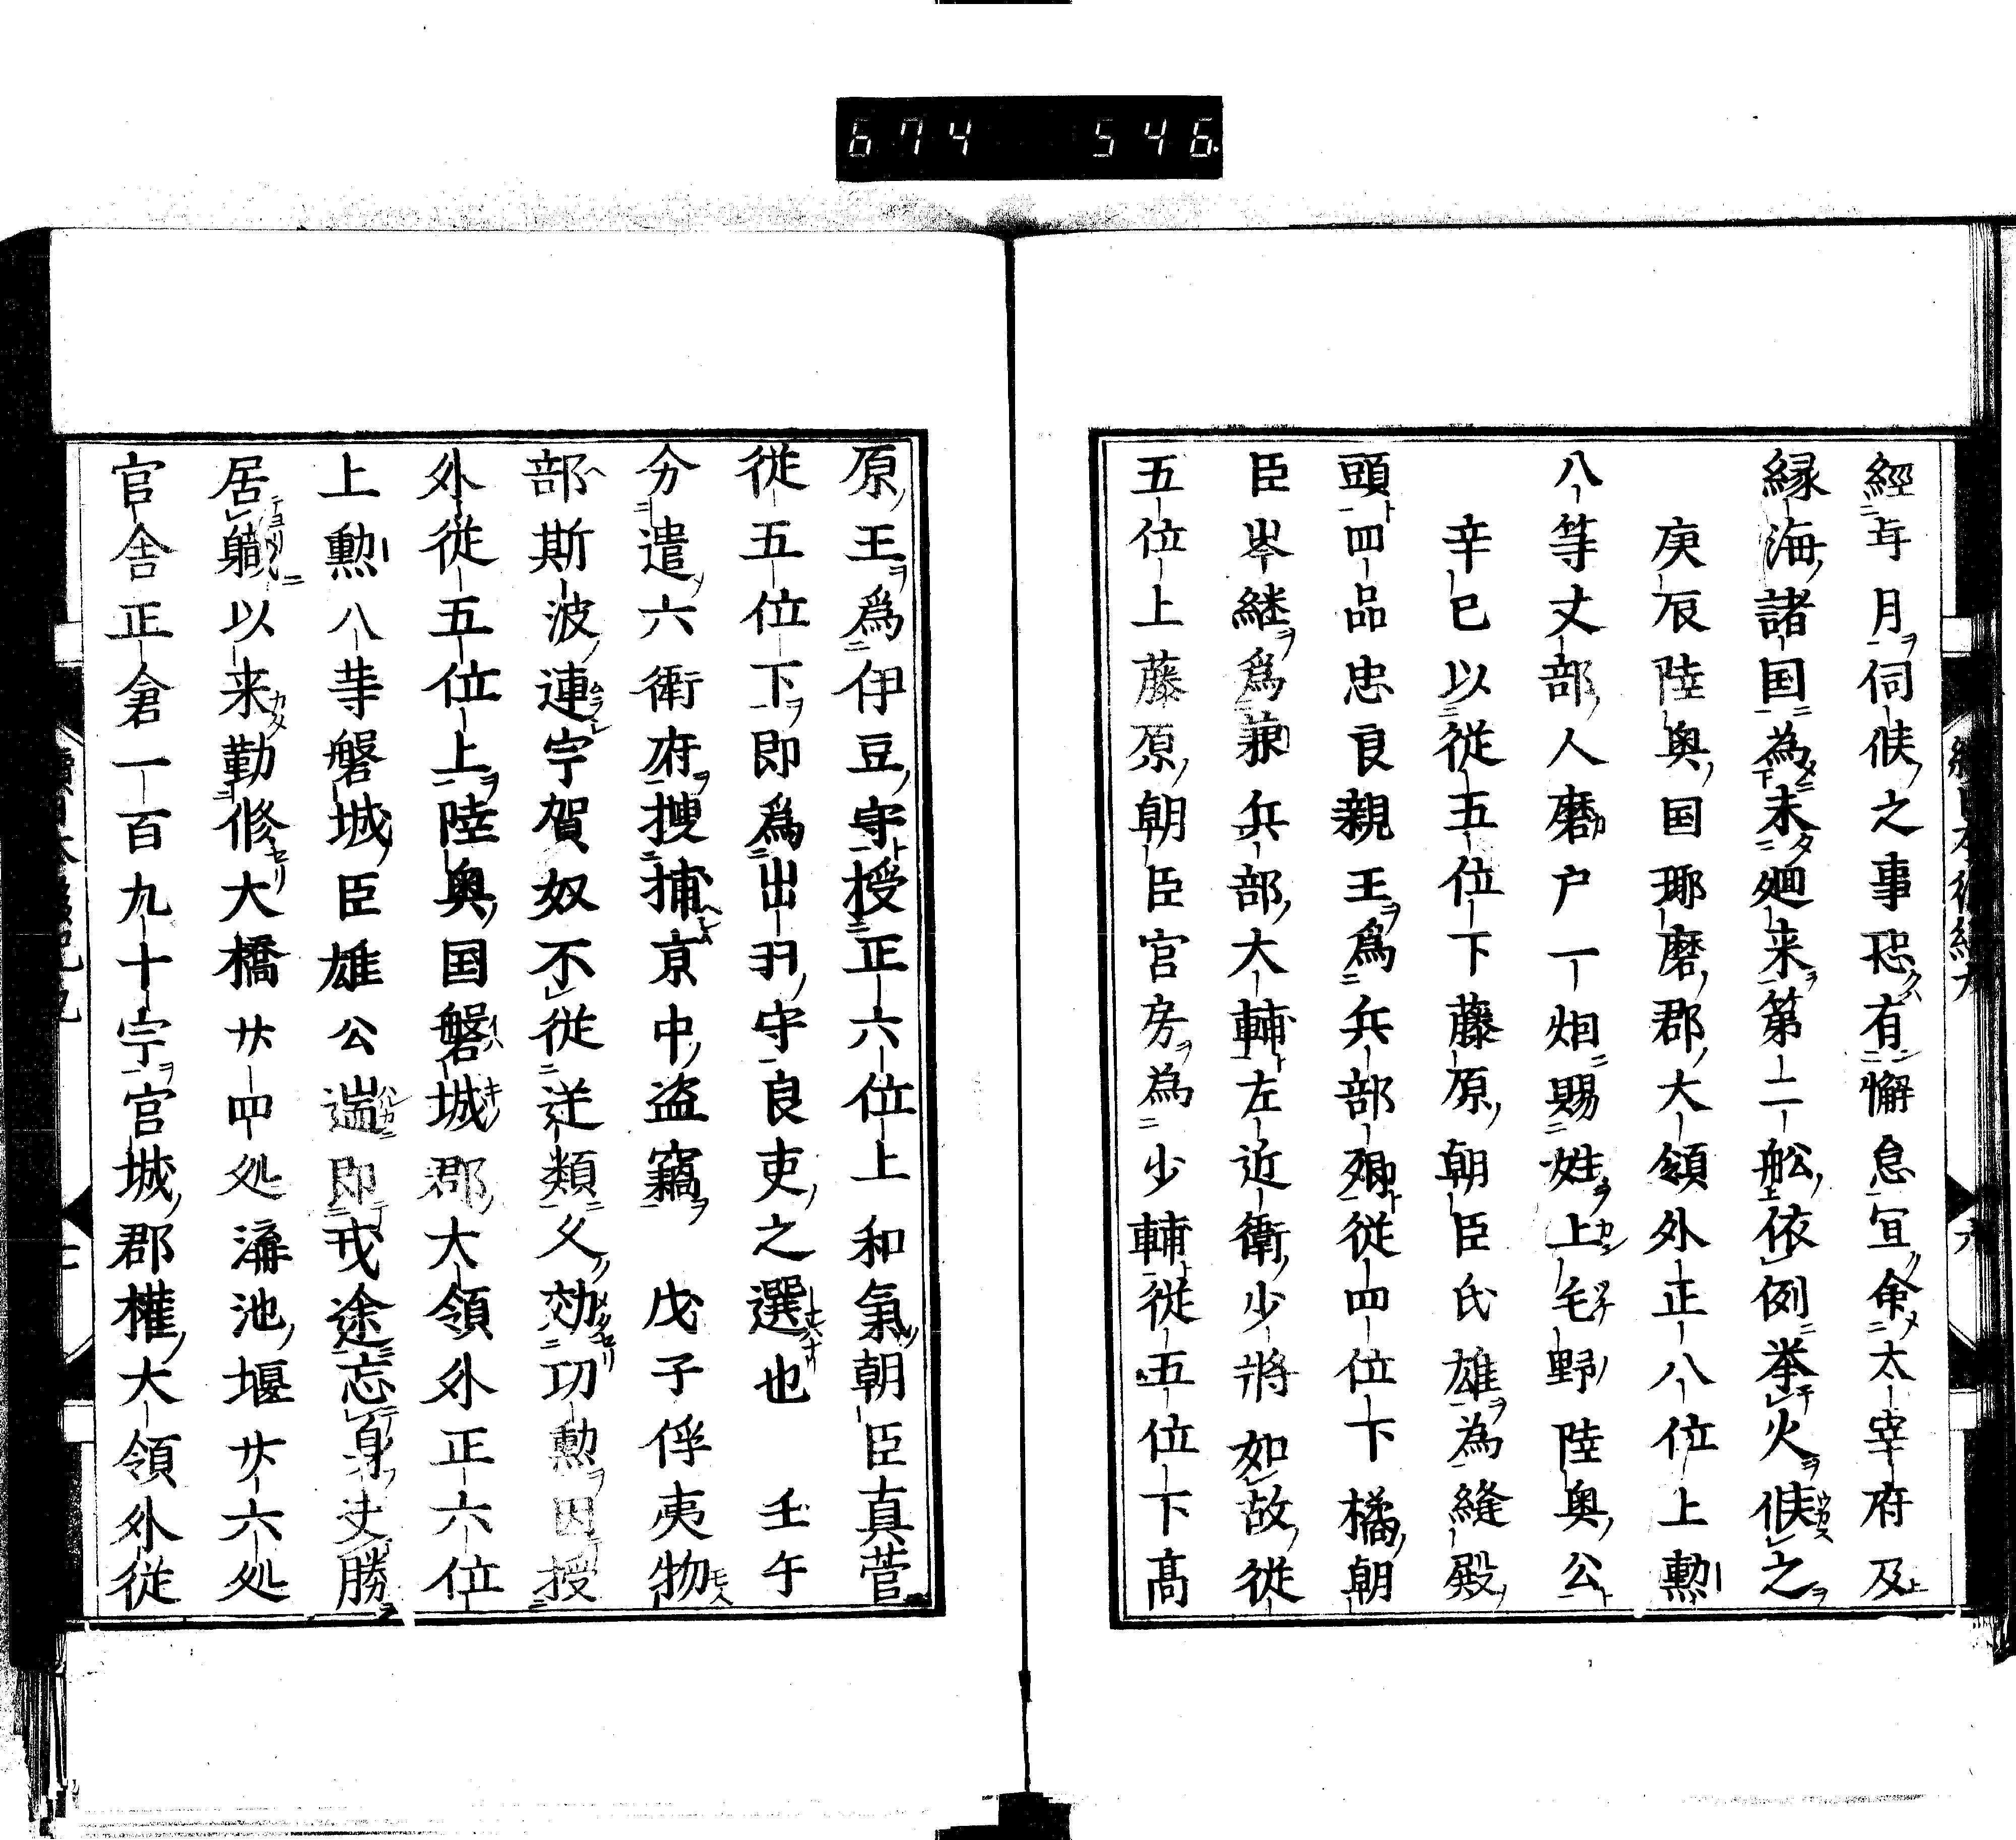 674 546
經年月伺候之事恐有懈怠宣命太宰府及
縁海諸国為未廻来第二舩依例挙火候之
庚辰陸奥国瑘磨郡大領外正八位上勲
八等丈部人磨户一烟賜姓上毛野陸奥公
辛巳以従五位下藤原朝臣氏雄為縫殿
頭四品忠良親王爲兵部卿従四位下橘朝
臣岑継爲兼兵部大輔左近衛少将如故従
五位上藤原朝臣宮房為少輔従五位下髙
原王爲伊豆守授正六位上和氣朝臣真菅
従五位下即爲出羽守良吏之選也 壬午
分遣六衛府搜捕京中盗竊 戊子俘夷物
部斯波連宇賀奴不従逆類父効功勲因授
外従五位上陸奥国磐城郡大領外正六位
上勲八䓁磐城臣雄公遄即戎途忘身决勝
居職以来勤修大橋廾四处溝池堰廾六处
官舎正倉一百九十宇官城郡權大領外従